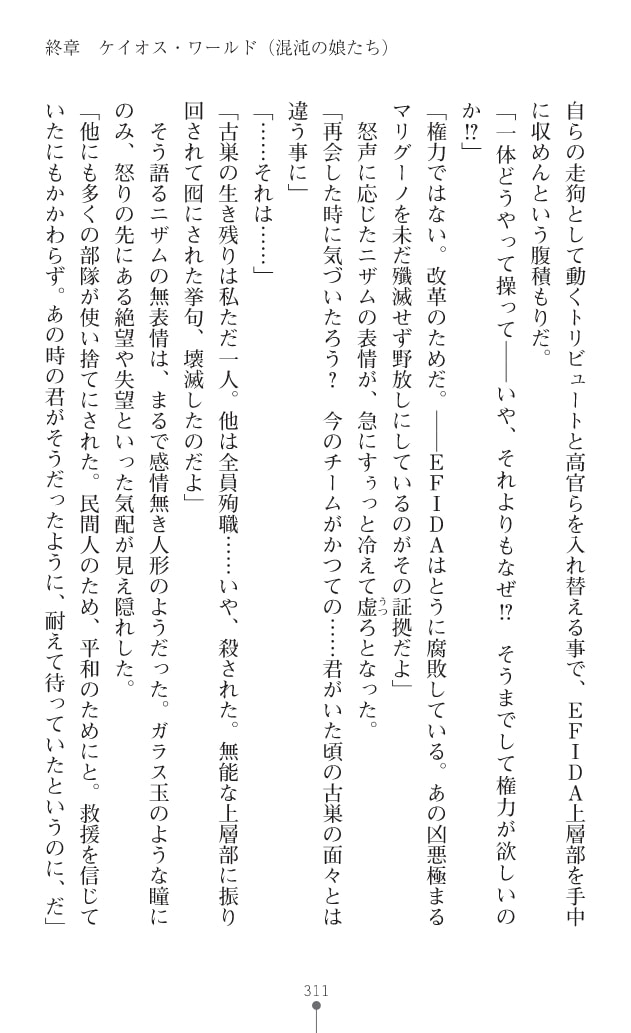 終章　ケイオス・ワールド（混沌の娘たち）
自らの走狗として動くトリビュートと高官らを入れ替える事で、ＥＦＩＤＡ上層部を手中
に収めんという腹積もりだ。
「一体どうやって操って――いや、それよりもなぜ!?　そうまでして権力が欲しいの
か!?」
「権力ではない。改革のためだ。――ＥＦＩＤＡはとうに腐敗している。あの凶悪極まる
マリグーノを未だ殲滅せず野放しにしているのがその証拠だよ」
怒声に応じたニザムの表情が、急にすぅっと冷えて虚うつろとなった。
「再会した時に気づいたろう？　今のチームがかつての……君がいた頃の古巣の面々とは
違う事に」
「……それは……」
「古巣の生き残りは私ただ一人。他は全員殉職……いや、殺された。無能な上層部に振り
回されて囮にされた挙句、壊滅したのだよ」
そう語るニザムの無表情は、まるで感情無き人形のようだった。ガラス玉のような瞳に
のみ、怒りの先にある絶望や失望といった気配が見え隠れした。
「他にも多くの部隊が使い捨てにされた。民間人のため、平和のためにと。救援を信じて
いたにもかかわらず。あの時の君がそうだったように、耐えて待っていたというのに、だ」
311